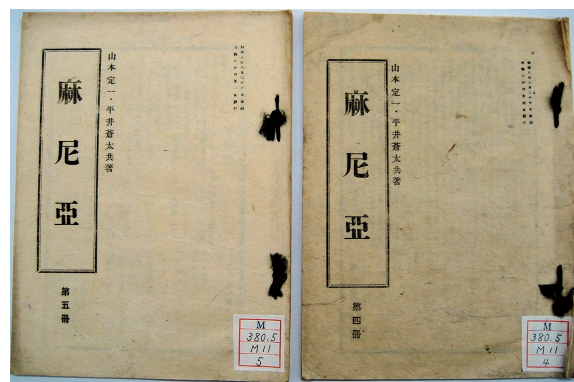 山本定一・平井蒼太共著
麻尼亞
第五冊
M
380.5
M11
5
山本定一・平井蒼太共著
麻尼亞
第四冊
M
380.5
M11
4